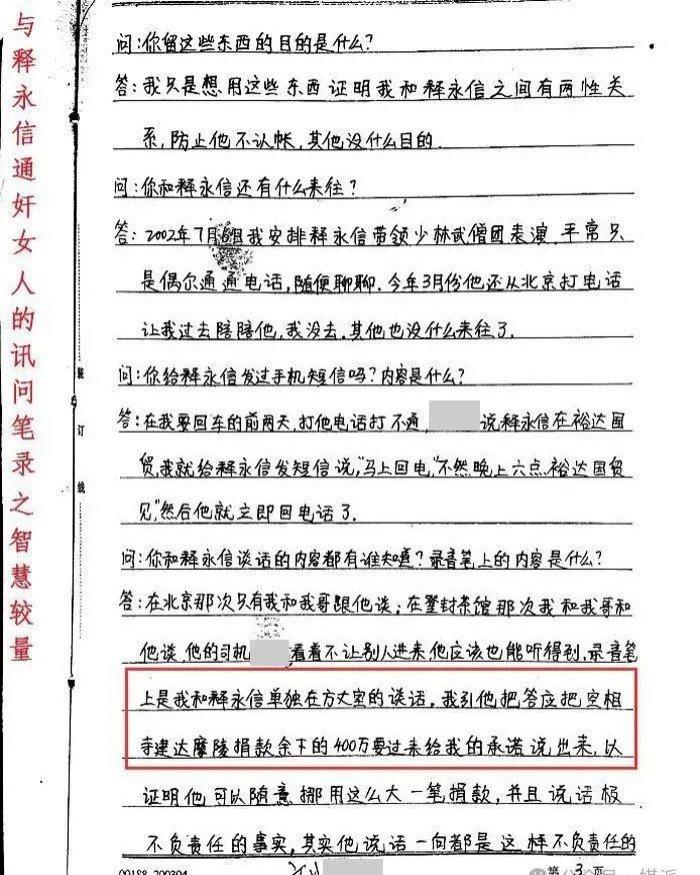 与释永信通奸女人的讯问笔录之智慧较量
问:你留这些东西的目的是什么?
答:我只是想用这些东西证明我和释永信之间有两性关
系,防止他不认帐,其他没什么目的.
问:你和释永信还有什么来往?
答:2002年7月 我安排释永信带领少林武僧团表演.平常只
是偶尔通通电话,随便聊聊.今年3月份他还从北京打电话
让我过去陪陪他,我没去.其他也没什么来往了.
问:你给释永信发过手机短信吗?内容是什么?
答:在我要回车的前两天,打他电话打不通, 说,释永信在裕达国
贸,我就给释永信发短信说,"马上回电,"不然晚上六点裕达国贸
见,"然后他就立即回电话了.
问:你和释永信谈话的内容都有谁知道?录音笔上的内容是什么?
答:在北京那次只有我和我哥跟他谈;在登封茶馆那次我和我哥和
他谈,他的司机 看着不让别人进来,他应该也能听得到,录音笔
上是我和释永信单独在方丈室的谈话。我引他把答应把空相
寺建达摩陵捐款余下的400万要过来给我的承诺说出来,以
证明他可以随意挪用这么大一笔捐款,并且说话极
不负责任的事实,其实他说话一向都是这样不负责任的
装
订
线
第 3 页